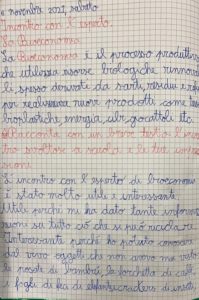 novembre 2021, sabato
Incontro con l'esperto
La Bioeconomia
La Bioeconomia è il processo produttivo
che utilizza risorse biologiche rinnova
li spesso derivate da scarti, residui e
per realizzare nuovi prodotti come
bioplastiche energia, cibo, giocattoli etc.
Racconta con un breve testo l'
svoltosi a scuola e le tue
sioni.
L'incontro con l'esperto di bioeconomia
è stato molto utile e interessante.
Utile perché mi ha dato tante informa
zioni su tutto ciò che si può riciclare.
Interessante perché ho potuto conoscere
dal vivo oggetti che non avevo mai visto:
le posate di bambù, la forchetta di
i fogli di di elefante, crackers di insetti